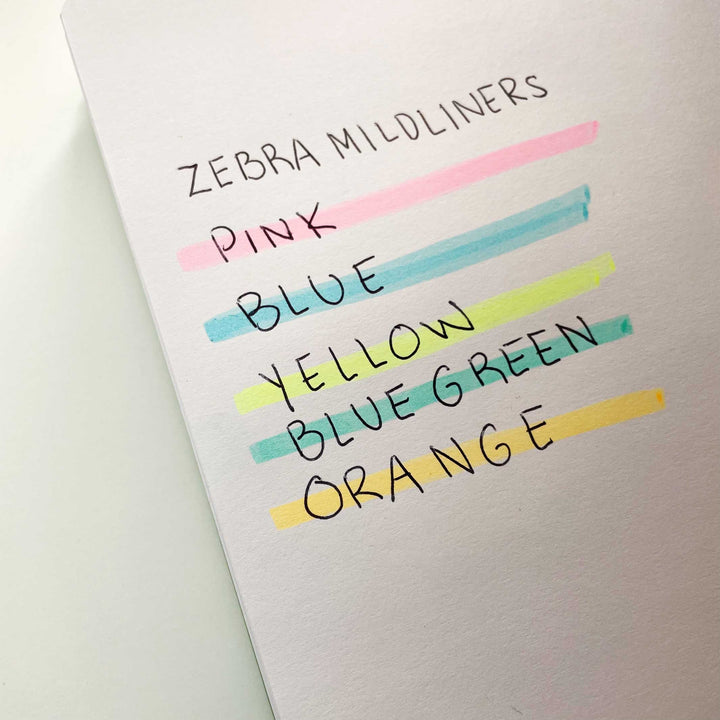 ZEBRA MILDLINERS
PINK
BLUE
YELLOW
BLUE GREEN
ORANGE